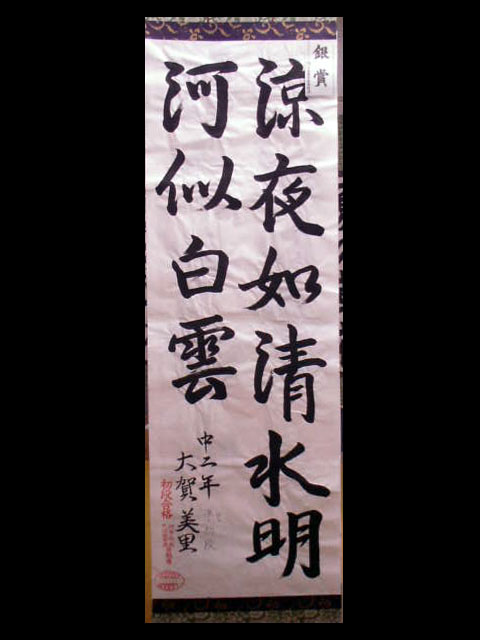 銀賞
涼夜如清水明
河似白雲
中二年
大賀美里
初段合格